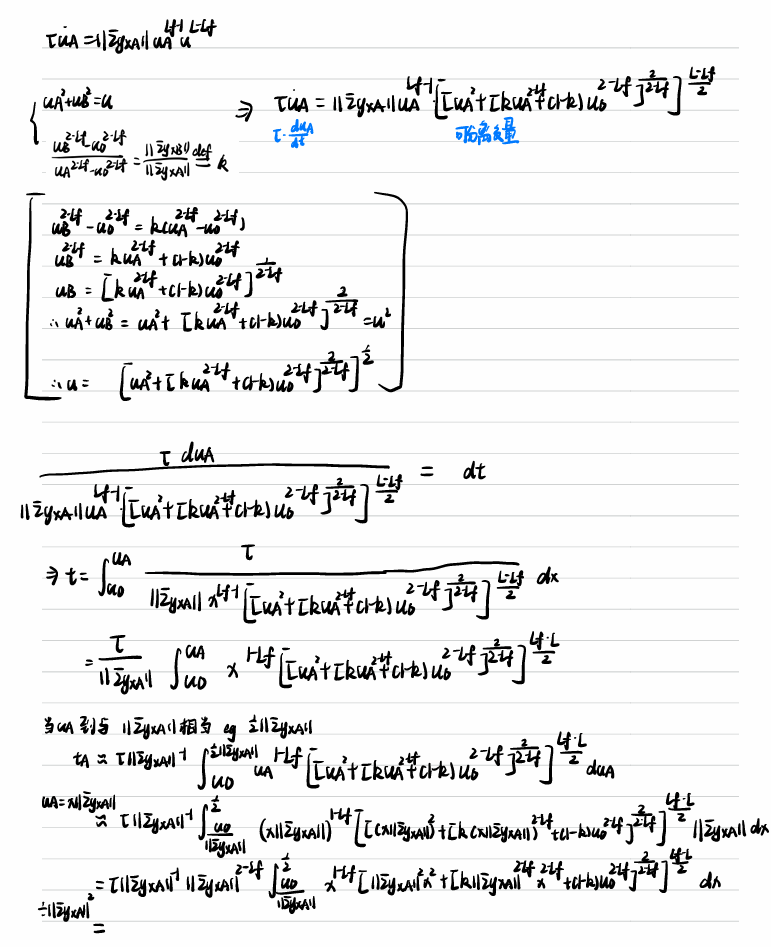 τu̇_A = ||Σ̄_yxA|| u_A^{Lf-1} u^{L-Lf}
{ u_A²+u_B² = u ⇒ τu̇_A = ||Σ̄_yxA|| u_A^{Lf-1} [[u_A²+[k u_A^{2-Lf}+(1-k)u_0^{2-Lf}]^{2/(2-Lf)}]^{(L-Lf)/2}
τ·du_A/dt 可分离变量
(u_B^{2-Lf}-u_0^{2-Lf})/(u_A^{2-Lf}-u_0^{2-Lf}) = ||Σ̄_yxB||/||Σ̄_yxA|| def= k
u_B^{2-Lf} - u_0^{2-Lf} = k(u_A^{2-Lf} - u_0^{2-Lf})
u_B^{2-Lf} = k u_A^{2-Lf} + (1-k)u_0^{2-Lf}
u_B = [k u_A^{2-Lf} + (1-k)u_0^{2-Lf}]^{1/(2-Lf)}
∴ u_A²+u_B² = u_A² + [k u_A^{2-Lf} + (1-k)u_0^{2-Lf}]^{2/(2-Lf)} = u²
∴ u = [u_A²+[k u_A^{2-Lf} + (1-k)u_0^{2-Lf}]^{2/(2-Lf)}]^{1/2}
τ du_A / (||Σ̄_yxA|| u_A^{Lf-1} [[u_A²+[k u_A^{2-Lf}+(1-k)u_0^{2-Lf}]^{2/(2-Lf)}]^{(L-Lf)/2}) = dt
⇒ t = ∫_{u_0}^{u_A} τ / (||Σ̄_yxA|| x^{Lf-1} [[u_A²+[k u_A^{2-Lf}+(1-k)u_0^{2-Lf}]^{2/(2-Lf)}]^{(L-Lf)/2}) dx
= τ/||Σ̄_yxA|| ∫_{u_0}^{u_A} x^{1-Lf} [[u_A²+[k u_A^{2-Lf}+(1-k)u_0^{2-Lf}]^{2/(2-Lf)}]^{(Lf-L)/2}
当u_A 到与 ||Σ̄_yxA|| 相当 eg ½||Σ̄_yxA||
t_A ≈ τ||Σ̄_yxA||^{-1} ∫_{u_0}^{½||Σ̄_yxA||} u_A^{1-Lf} [[u_A²+[k u_A^{2-Lf}+(1-k)u_0^{2-Lf}]^{2/(2-Lf)}]^{(Lf-L)/2} du_A
u_A=x||Σ̄_yxA|| ≈ τ||Σ̄_yxA||^{-1} ∫_{u_0/||Σ̄_yxA||}^{½} (x||Σ̄_yxA||)^{1-Lf} [[(x||Σ̄_yxA||)²+[k(x||Σ̄_yxA||)^{2-Lf}+(1-k)u_0^{2-Lf}]^{2/(2-Lf)}]^{(Lf-L)/2} ||Σ̄_yxA|| dx
= τ||Σ̄_yxA||^{-1} ||Σ̄_yxA||^{2-Lf} ∫_{u_0/||Σ̄_yxA||}^{½} x^{1-Lf} [||Σ̄_yxA||²x²+[k||Σ̄_yxA||^{2-Lf}x^{2-Lf}+(1-k)u_0^{2-Lf}]^{2/(2-Lf)}]^{(Lf-L)/2} dx
÷||Σ̄_yxA||² =